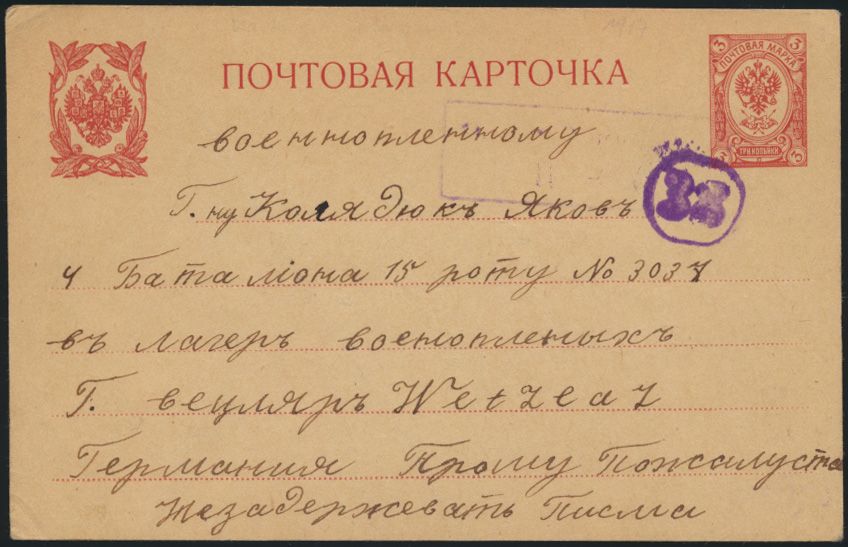 1917
ПОЧТОВАЯ КАРТОЧКА
3 3
ПОЧТОВАЯ МАРКА
ТРИ КОПѢЙКИ
3 3
военнопленному
Г. ну Колядюкъ Яковъ
4 Баталіона 15 роту № 3037
въ лагеръ военопленыхъ
Г. вецляръ Wetzlaz
Германия Прошу Пожалуста
Незадержевать Писма